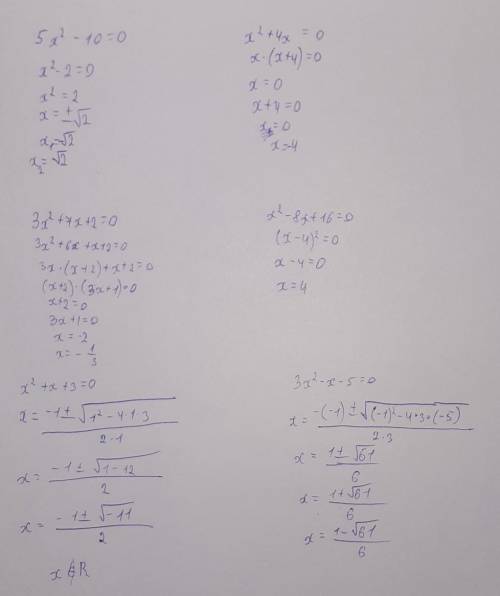 5x² - 10 = 0
x² - 2 = 0
x² = 2
x = ±√2
x₁ = -√2
x₂ = √2
x² + 4x = 0
x · (x + 4) = 0
x = 0
x + 4 = 0
x = 0
x = -4
3x² + 7x + 2 = 0
3x² + 6x + x + 2 = 0
3x · (x + 2) + x + 2 = 0
(x + 2) · (3x + 1) = 0
x + 2 = 0
3x + 1 = 0
x = -2
x = - 1/3
x² - 8x + 16 = 0
(x - 4)² = 0
x - 4 = 0
x = 4
x² + x + 3 = 0
x = (-1 ± √(1² - 4·1·3)) / (2·1)
x = (-1 ± √(1 - 12)) / 2
x = (-1 ± √(-11)) / 2
x ∉ R
3x² - x - 5 = 0
x = (-(-1) ± √((-1)² - 4·3·(-5))) / (2·3)
x = (1 ± √61) / 6
x = (1 + √61) / 6
x = (1 - √61) / 6